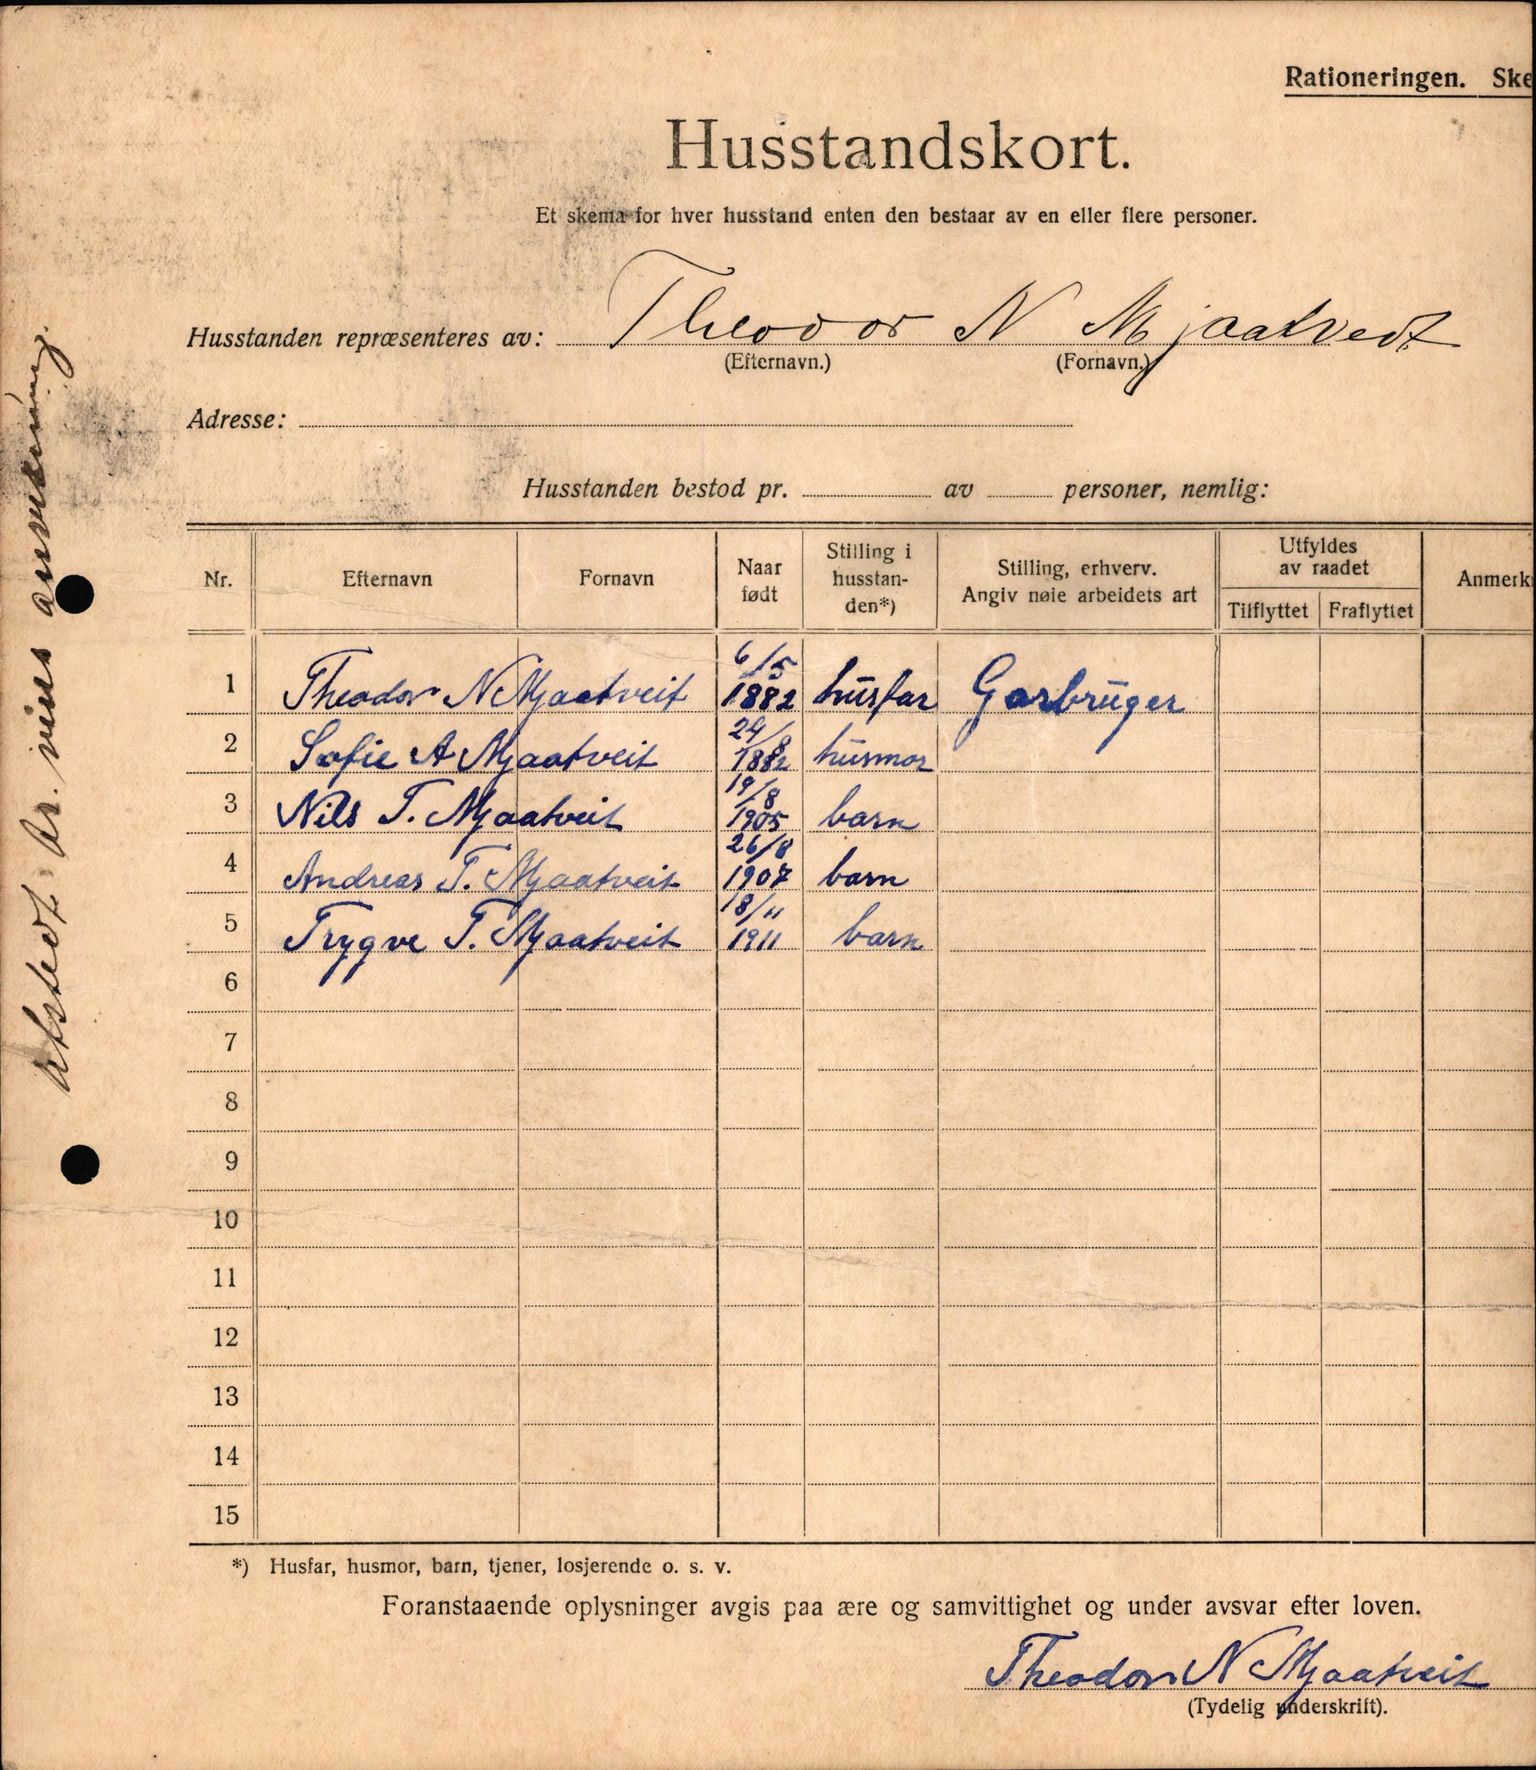 Rationeringen. Ske
Husstandskort.
Et skema for hver husstand enten den bestaar av en eller flere personer.
Husstanden repræsenteres av: Theodor N Mjaatvedt
(Efternavn.) (Fornavn.)
Adresse:
Husstanden bestod pr. av personer, nemlig:
Nr. Efternavn Fornavn Naar født Stilling i husstan-den*) Stilling, erhverv. Angiv nøie arbeidets art Utfyldes av raadet Tilflyttet Fraflyttet Anmerk
1 Theodor N Mjaatveit 6/5 1882 husfar Garbruger
2 Sofie A Mjaatveit 29/8 1882 husmor
3 Nils T. Mjaatveit 19/8 1905 barn
4 Andreas T. Mjaatveit 26/8 1907 barn
5 Trygve T. Mjaatveit 18/11 1911 barn
6
7
8
9
10
11
12
13
14
15
*) Husfar, husmor, barn, tjener, losjerende o. s. v.
Foranstaaende oplysninger avgis paa ære og samvittighet og under avsvar efter loven.
Theodor N Mjaatveit
(Tydelig underskrift).
Utstedt br. anvisning.